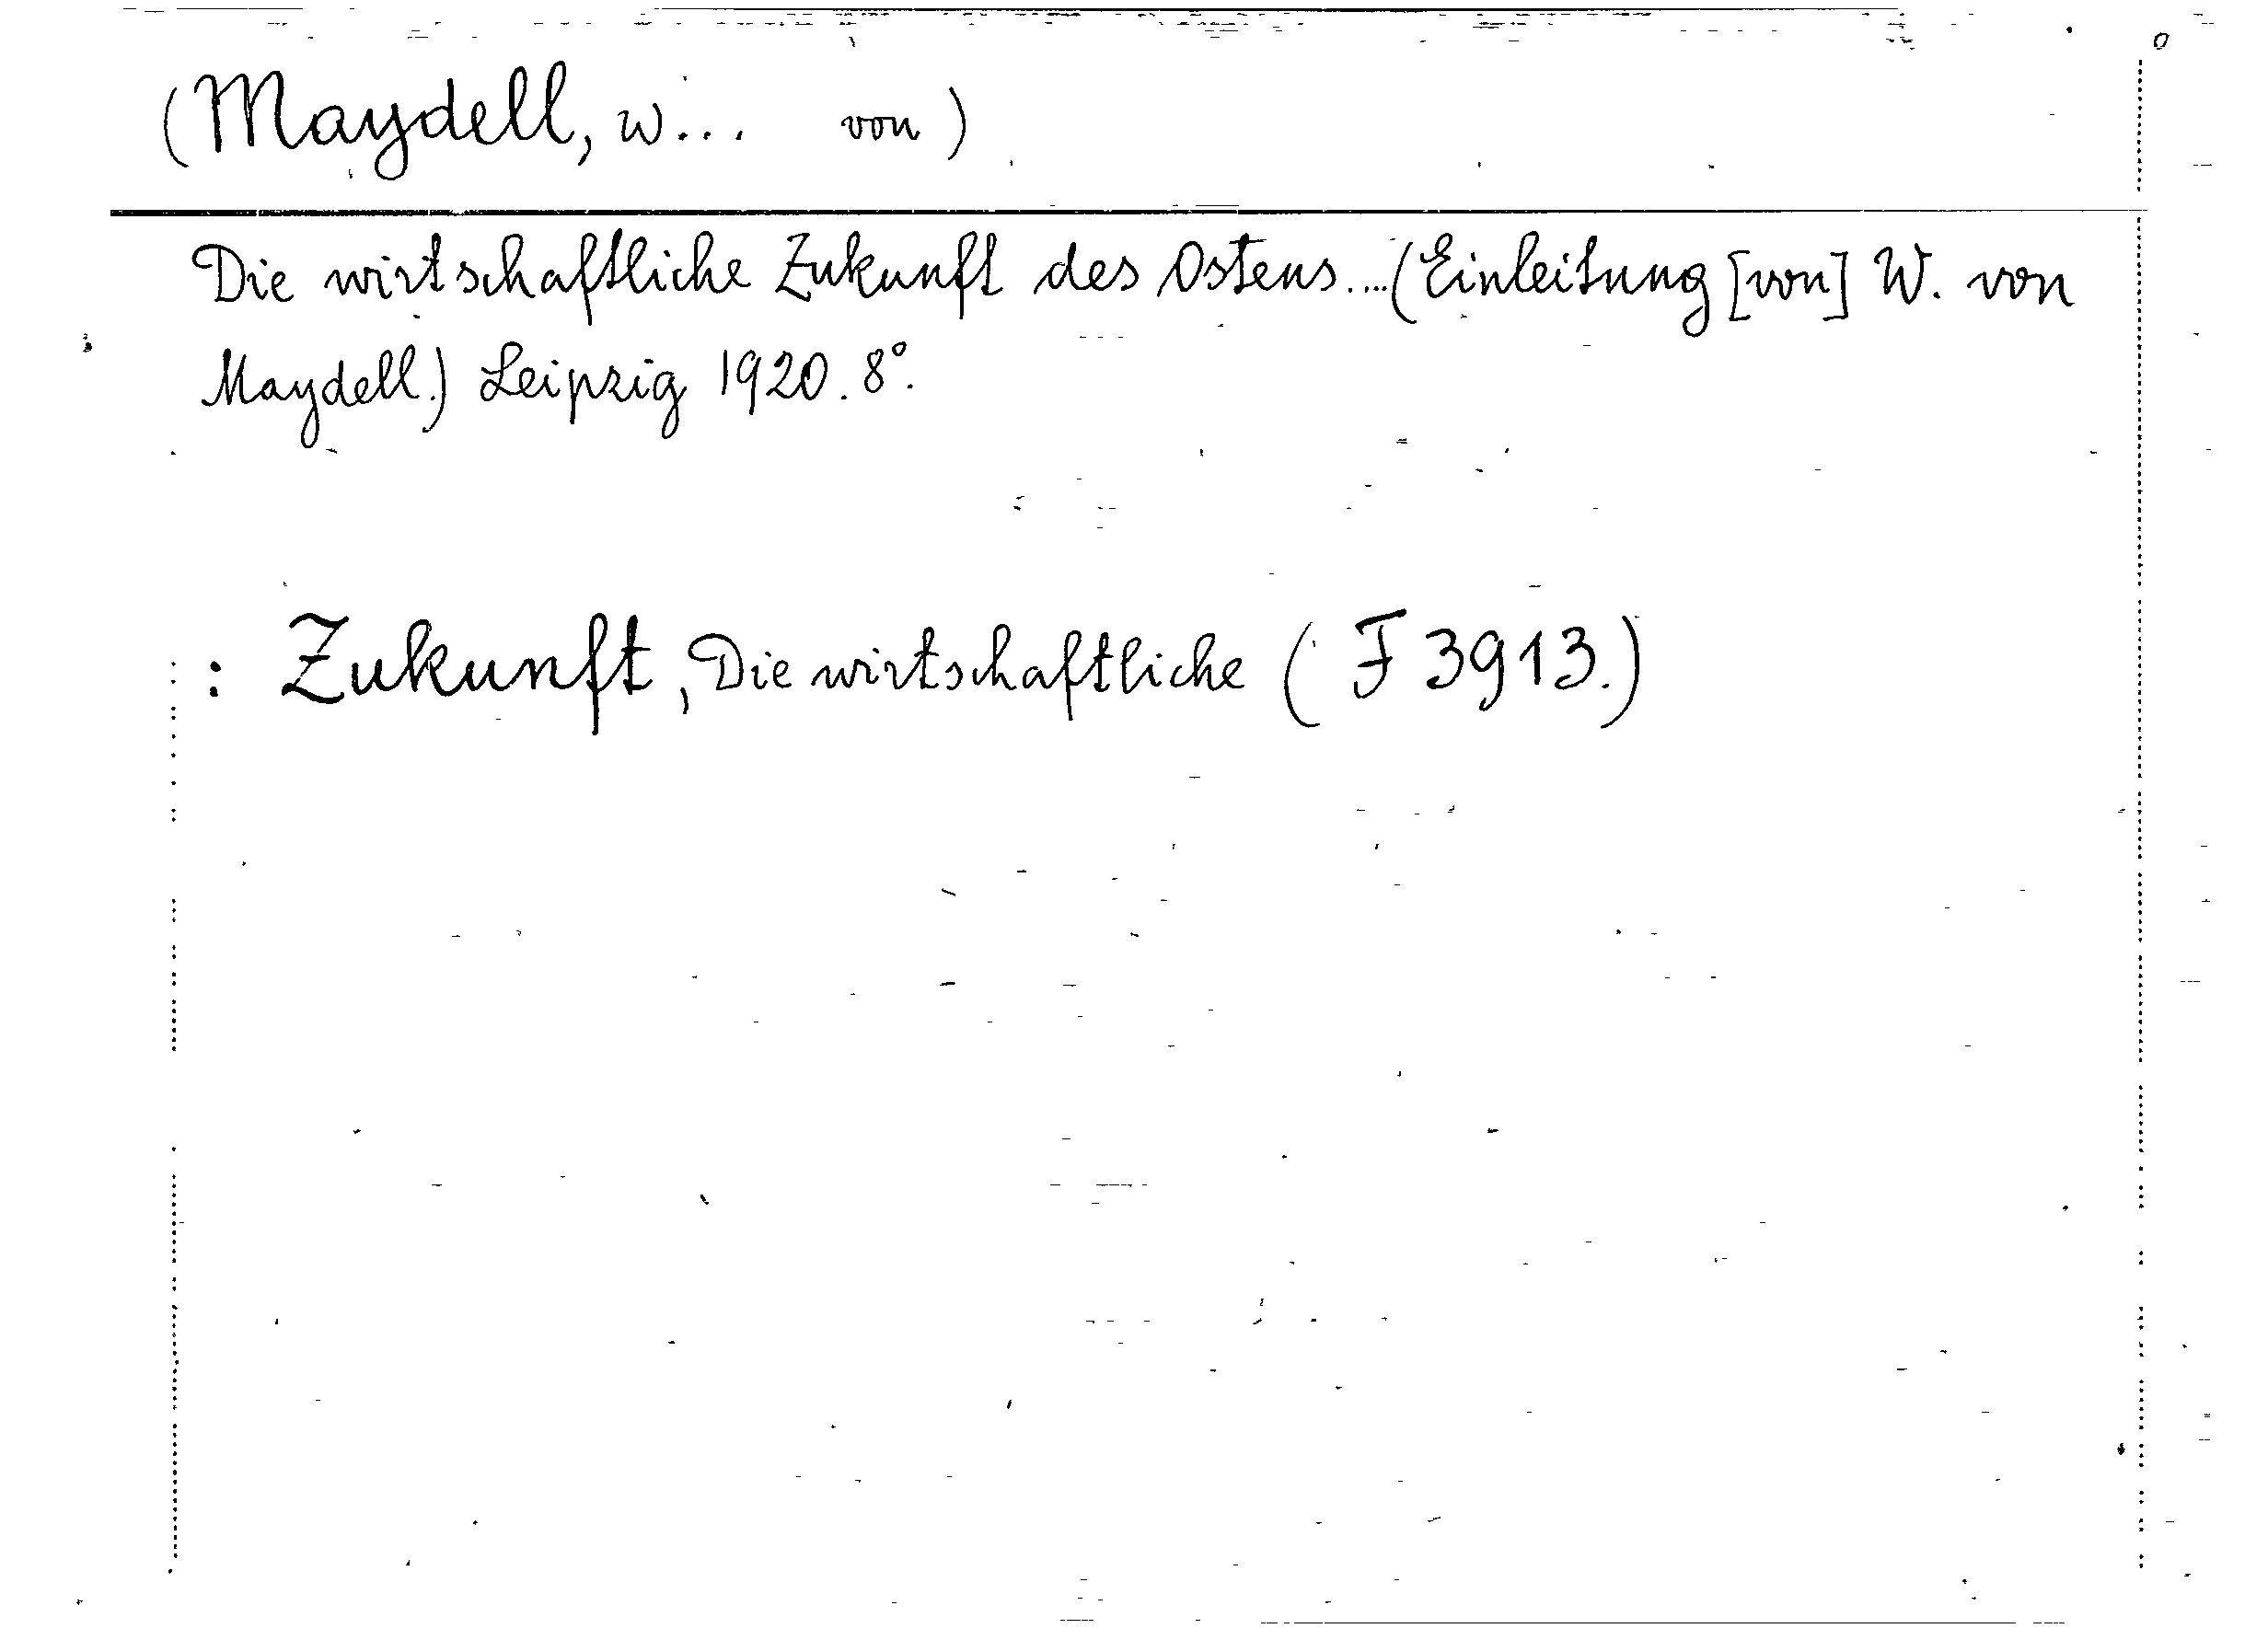 (Maydell, W... von)
Die wirtschaftliche Zukunft des Ostens....(Einleitung [von] W. von
Maydell.) Leipzig 1920. 8°.
: Zukunft, Die wirtschaftliche (F 3913.)